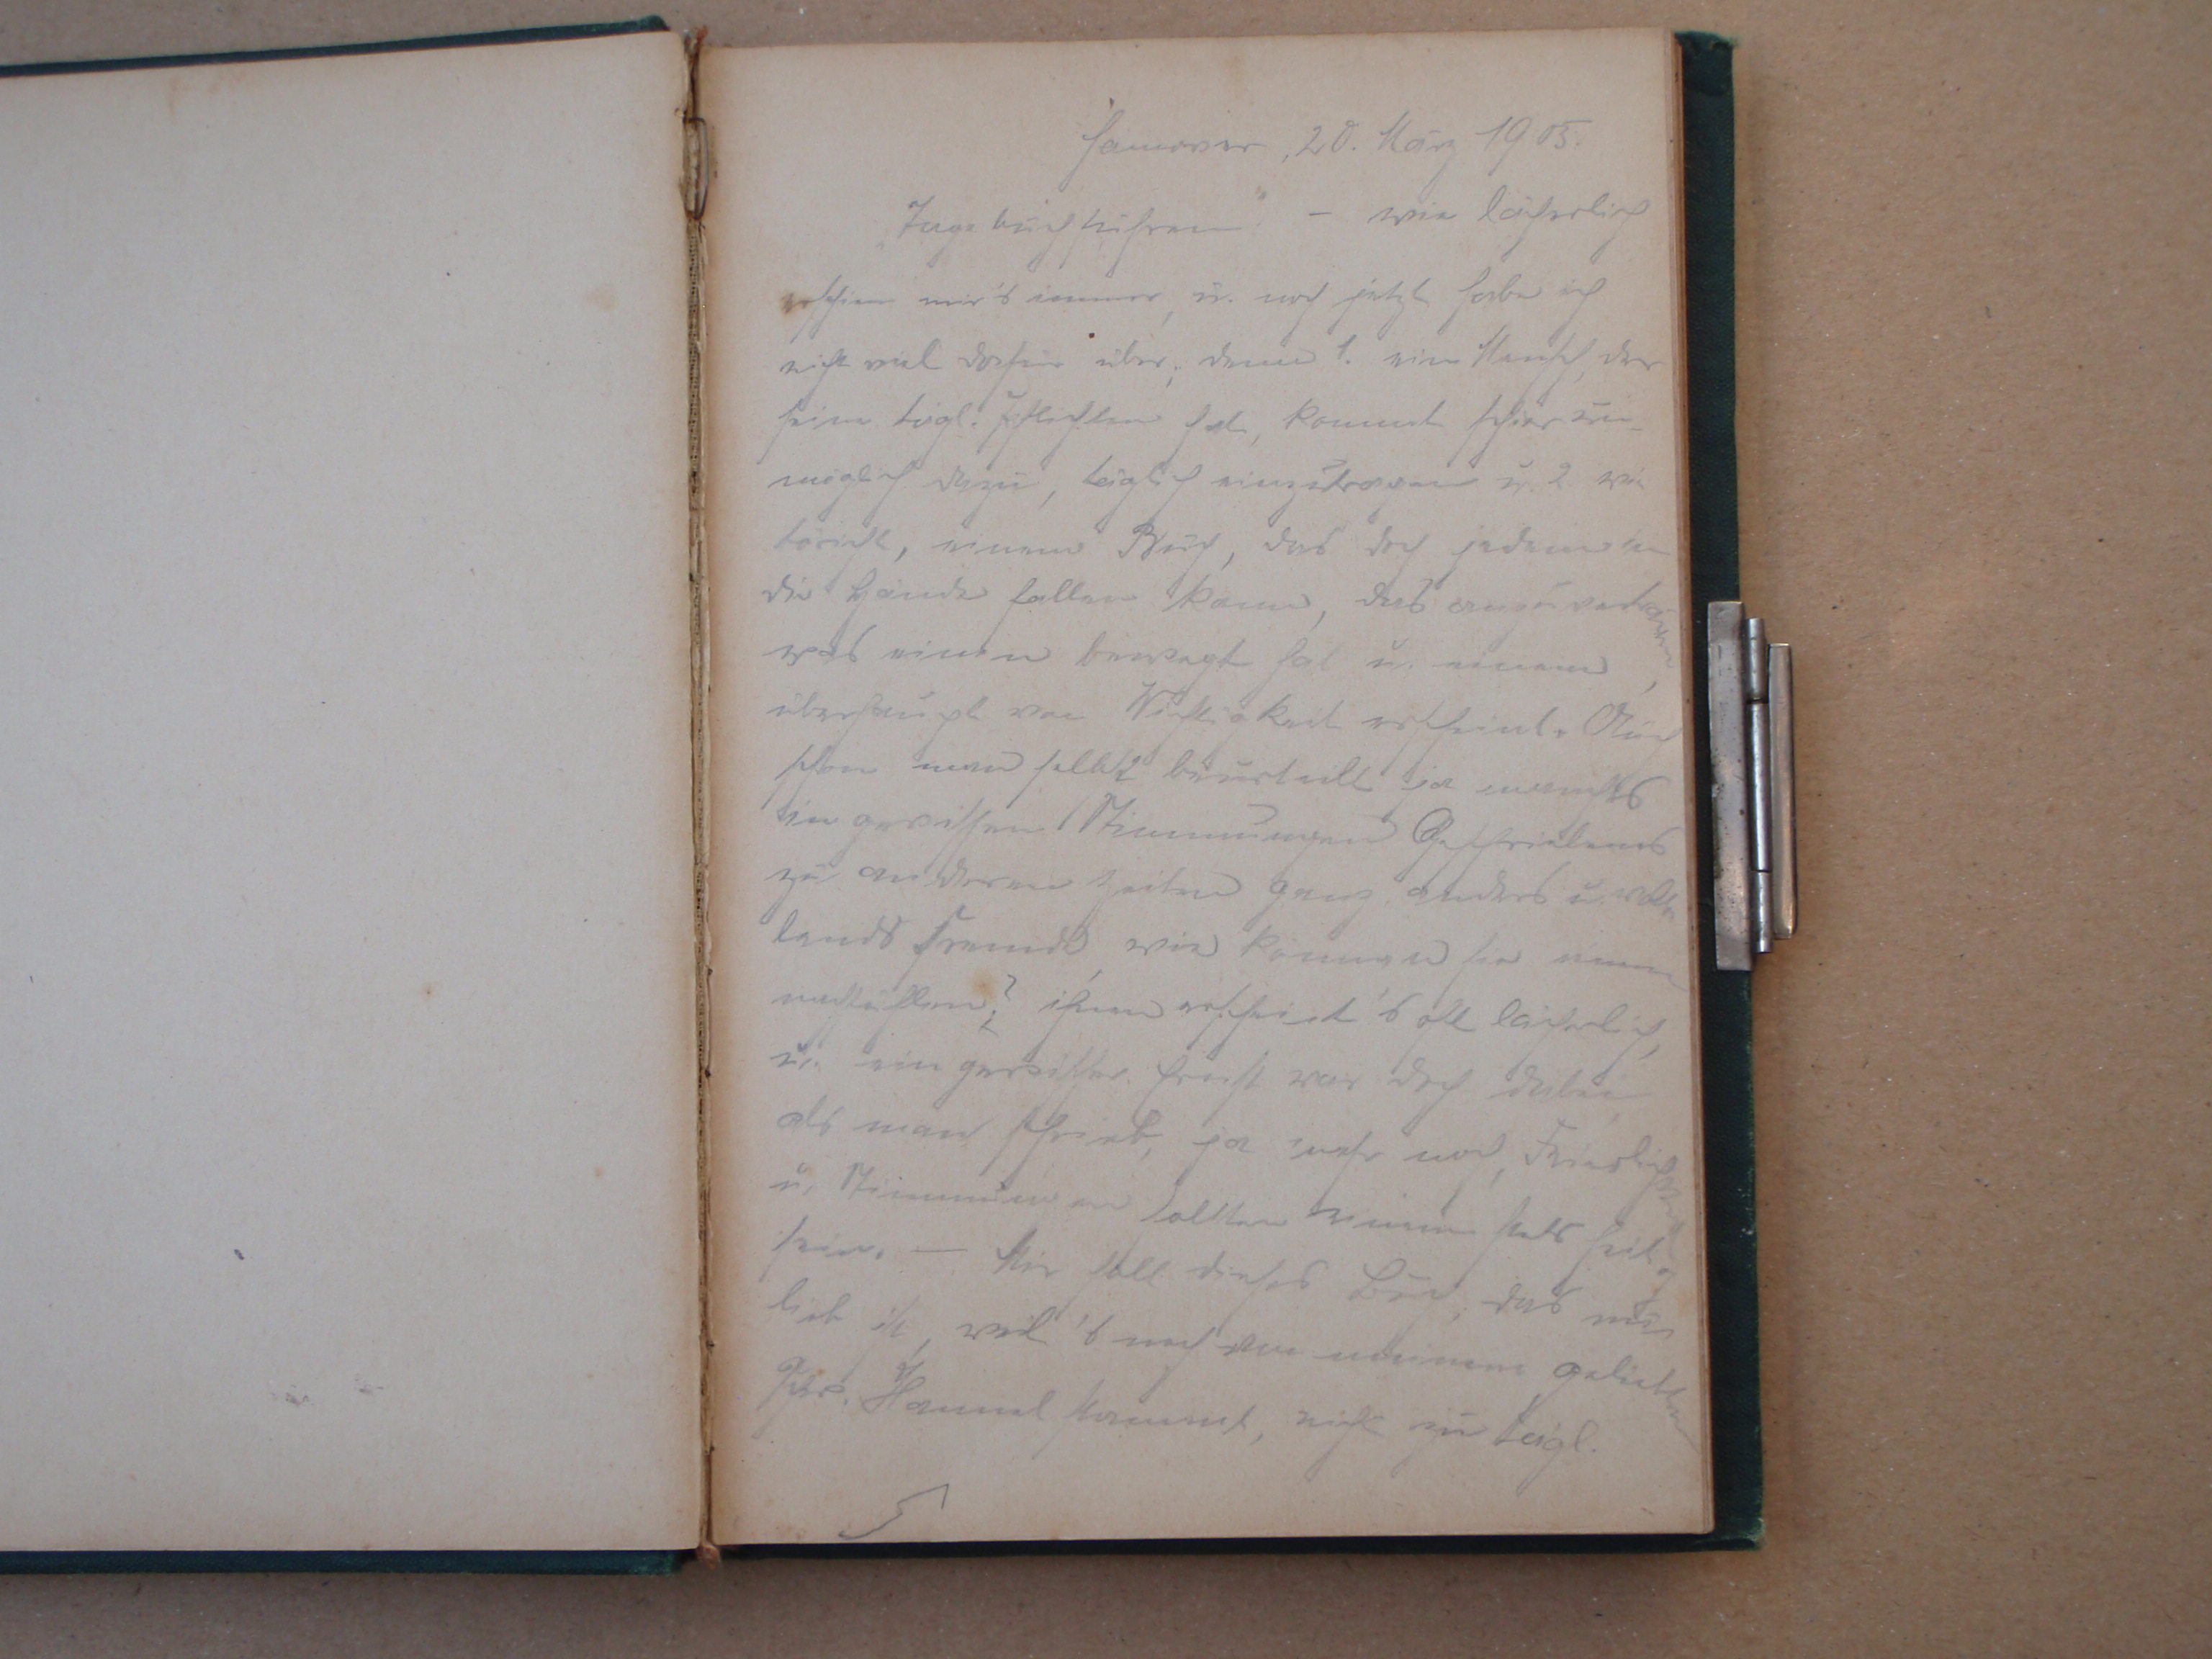 Hannover, 20. März 1905.
"Tagebuchführen" – wie lächerlich
erschien mir's immer, u. noch jetzt habe ich
nicht viel dafür über; denn 1. ein Mensch, der
seine tägl. Pflichten hat, kommt schier un-
möglich dazu, täglich einzutragen u. 2. wie
töricht, einem Buch, das doch jedem in
die Hände fallen kann, das anzuvertrauen,
was einen bewegt hat u. einem
überhaupt von Wichtigkeit erscheint. Auch
schon man selbst beurteilt ja manches
in gewissen Stimmungen Geschriebenes
zu anderen Zeiten ganz anders u. voll-
lends Fremde, wie können sie einem
nachfühlen? ihnen erscheint's oft lächerlich,
u. ein gewisser Ernst war doch dabei,
als man schrieb, ja mehr noch,
u. Stimmungen sollten einem stets heilig
sein. — Mir soll dieses Buch, das mir
lieb ist, weil's noch von meinem geliebten
Hammel stammt, nicht zu tägl.